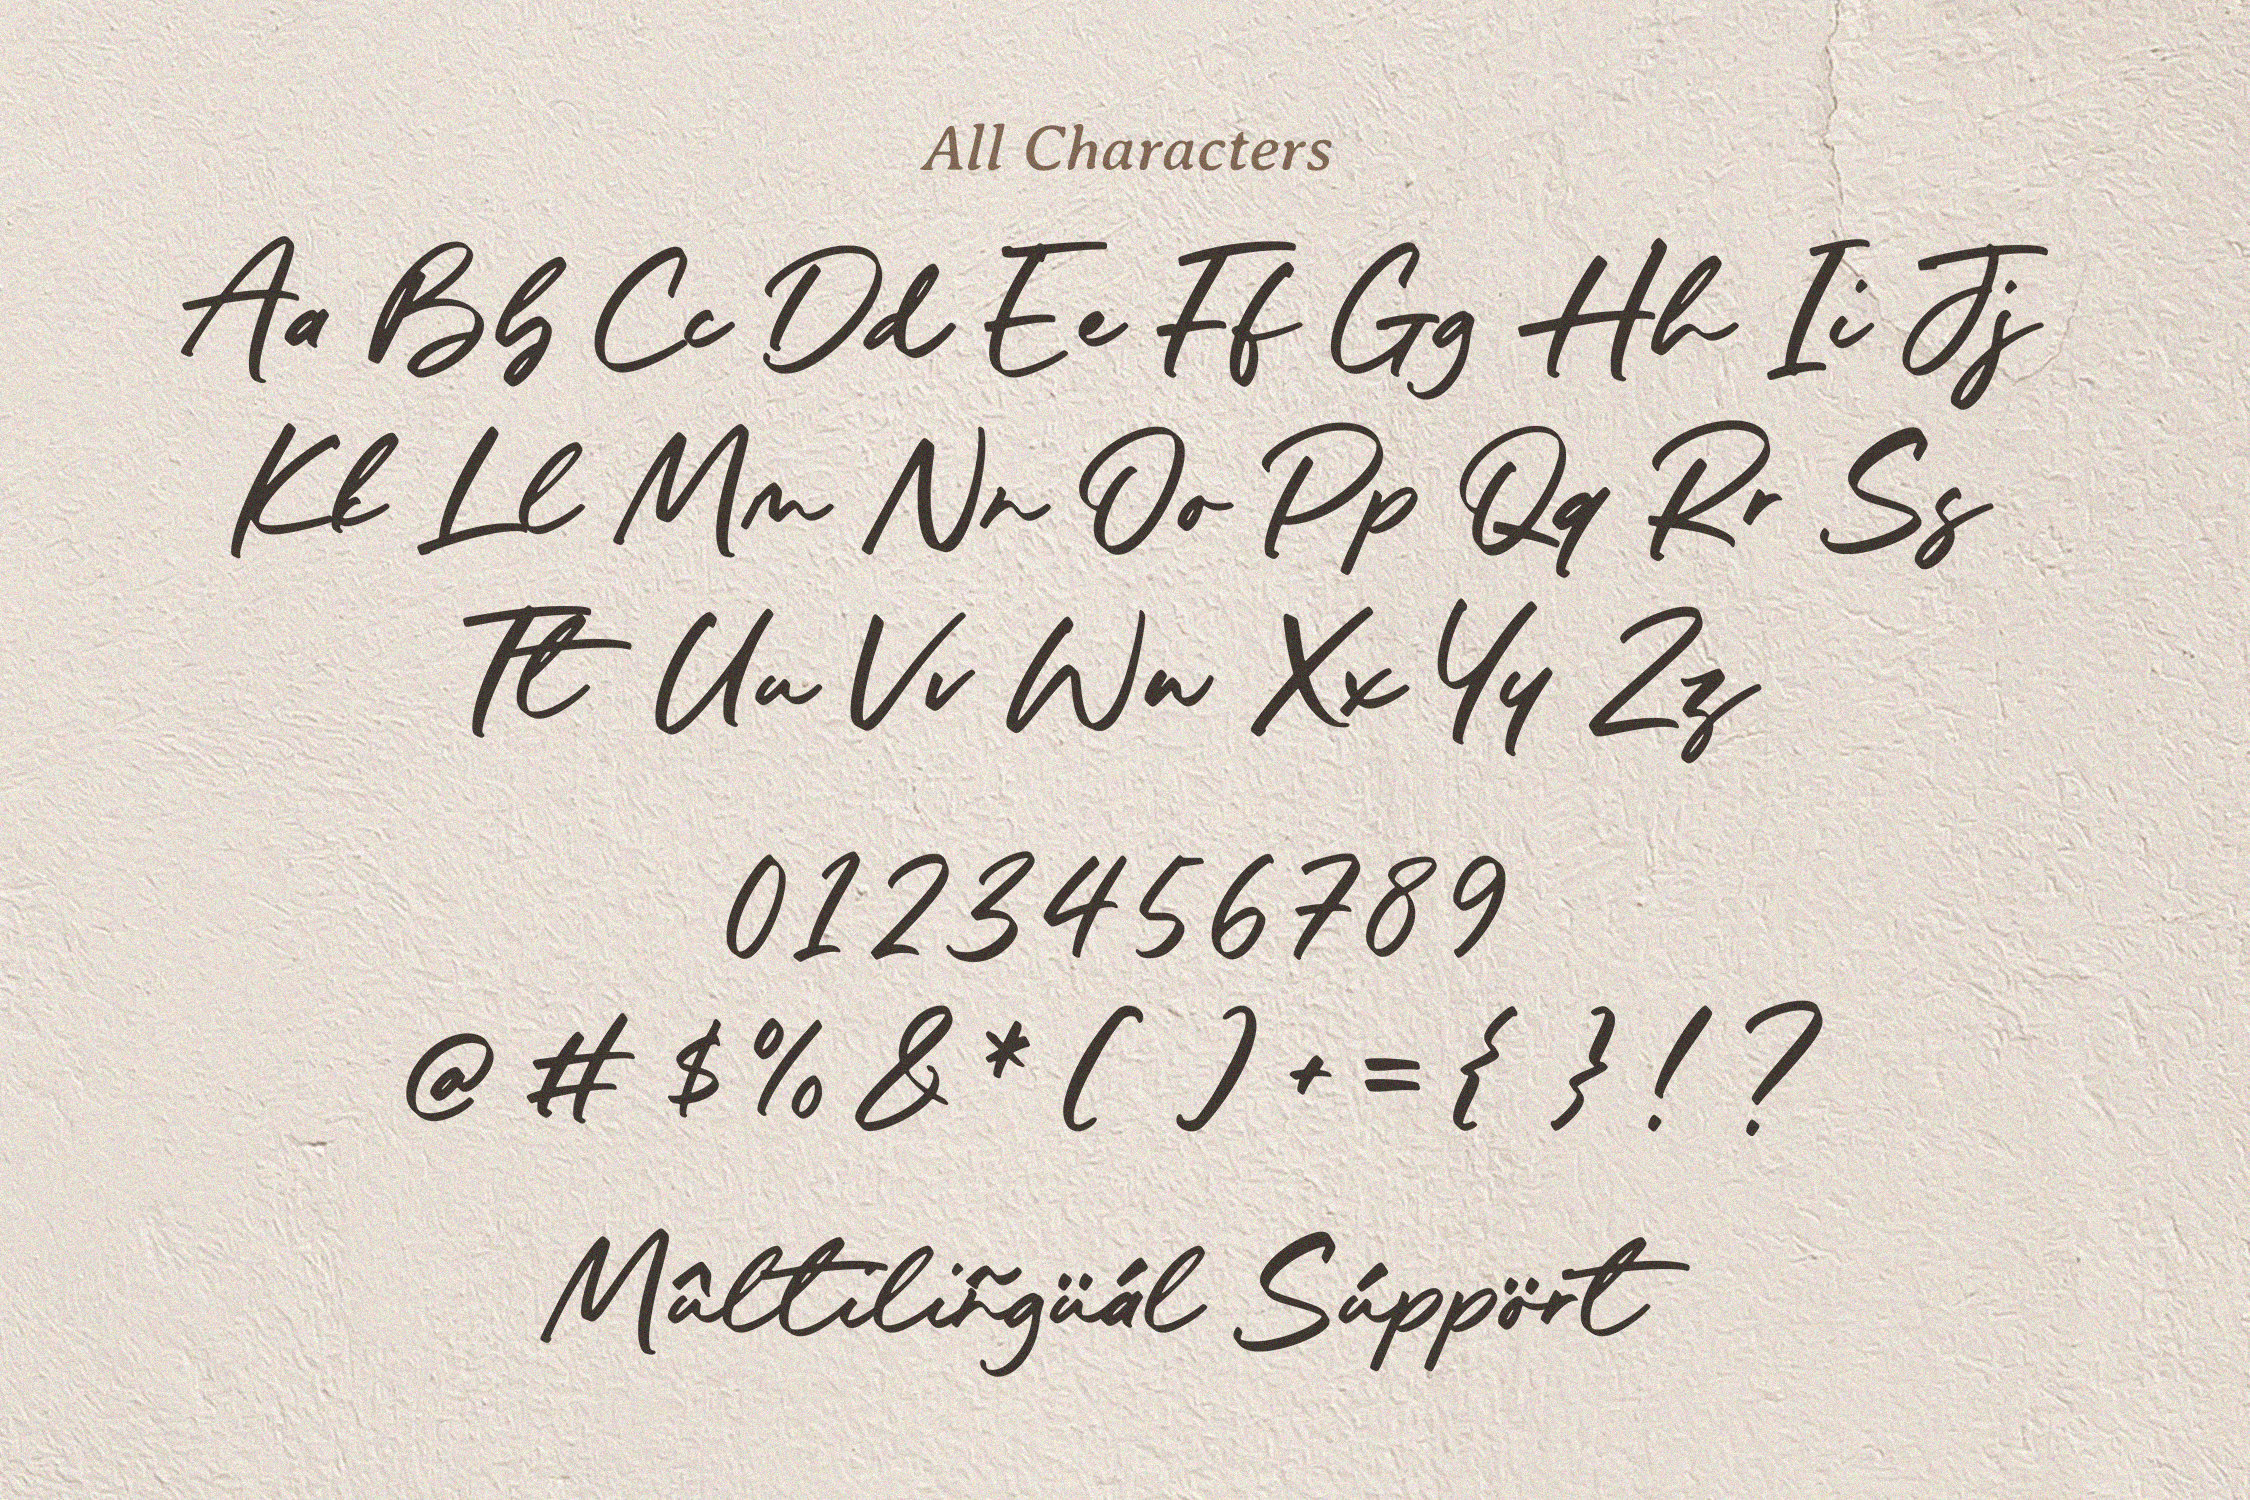 All Characters
Aa Bb Cc Dd Ee Ff Gg Hh Ii Jj
Kk Ll Mm Nn Oo Pp Qq Rr Ss
Tt Uu Vv Ww Xx Yy Zz
0123456789
@ # $ % & * ( ) + = { } ! ?
Mûltiliñgüál Súppört